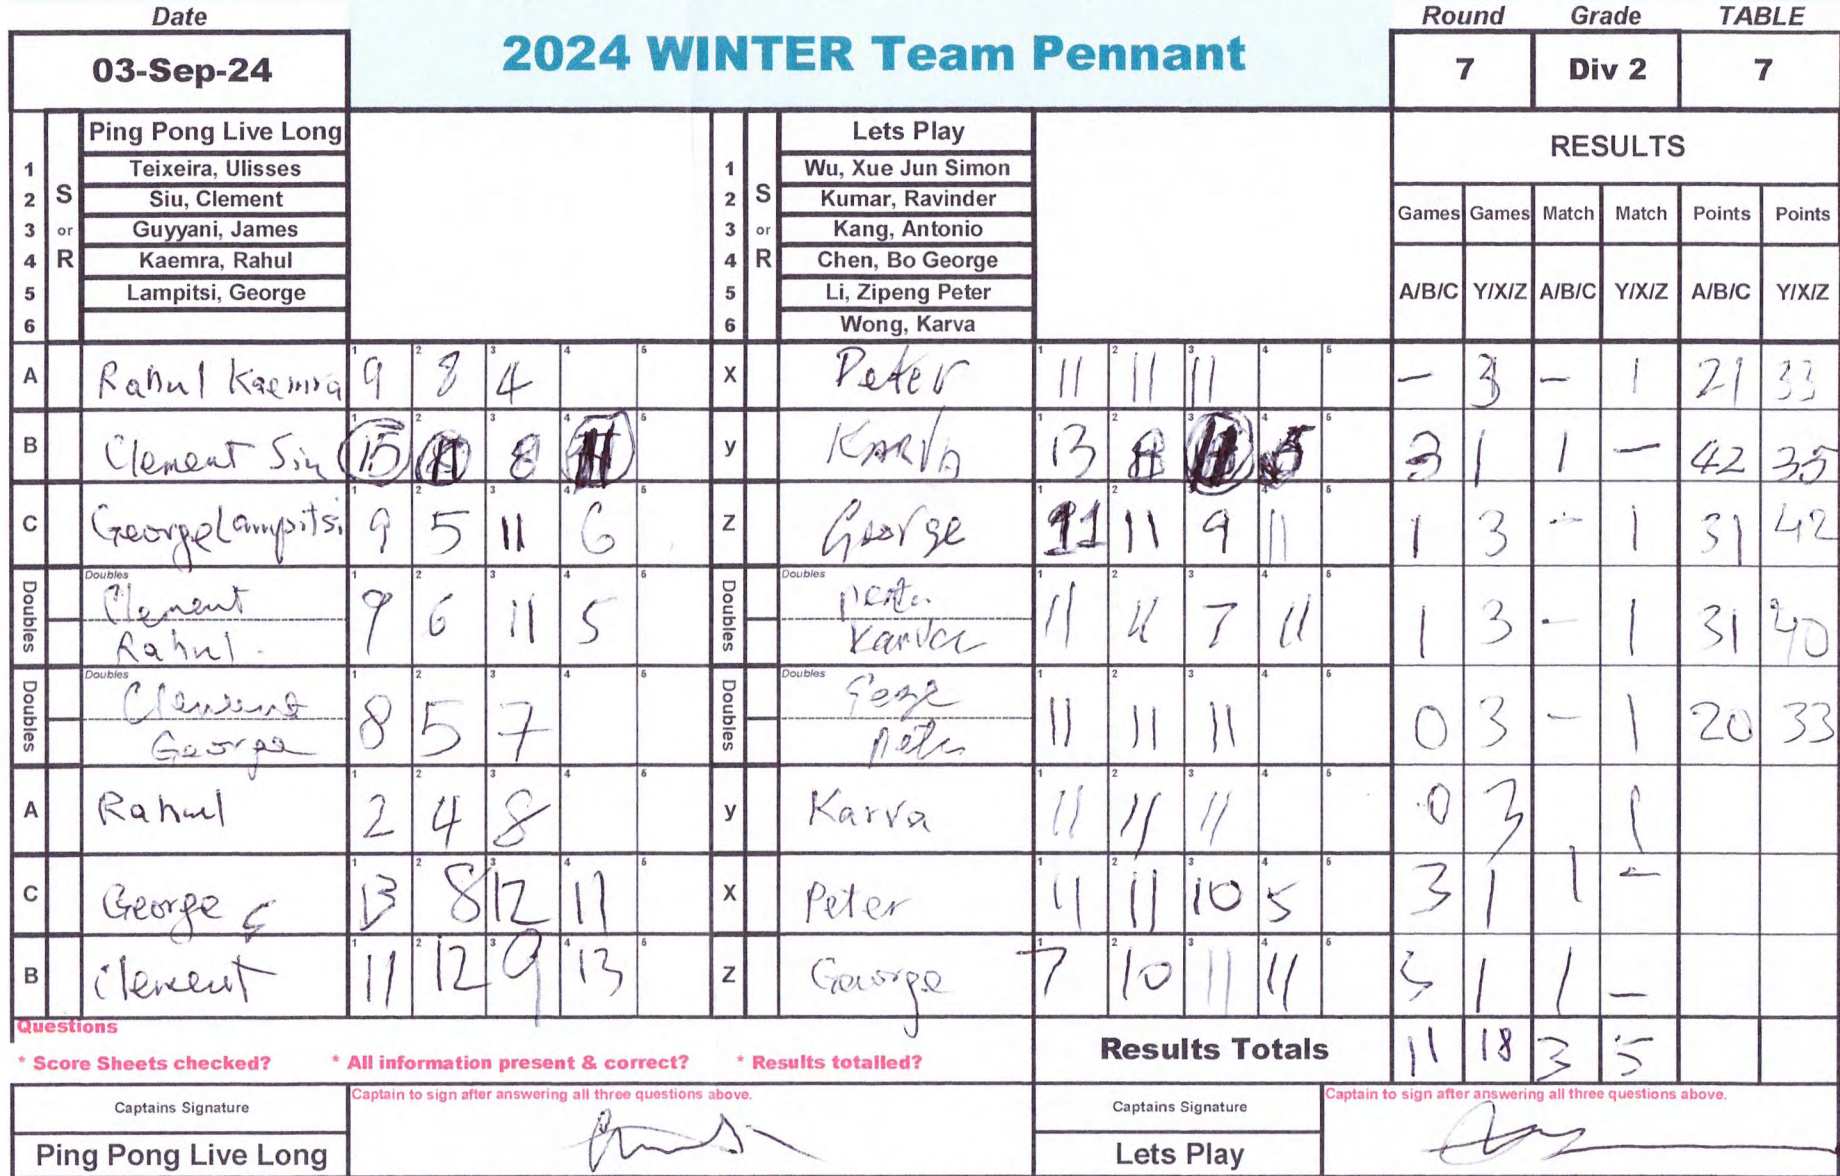 Date
03-Sep-24
2024 WINTER Team Pennant
Round Grade TABLE
7 Div 2 7
Ping Pong Live Long
1 Teixeira, Ulisses
2 Siu, Clement
3 Guyyani, James
4 Kaemra, Rahul
5 Lampitsi, George
6
S or R
Lets Play
1 Wu, Xue Jun Simon
2 Kumar, Ravinder
3 Kang, Antonio
4 Chen, Bo George
5 Li, Zipeng Peter
6 Wong, Karva
S or R
RESULTS
Games Games Match Match Points Points
A/B/C Y/X/Z A/B/C Y/X/Z A/B/C Y/X/Z
A Rahul Kaemra 9 8 4 X Peter 11 11 11 – 3 – 1 21 33
B Clement Siu 15 11 8 11 y Karva 13 8 11 5 3 1 1 – 42 35
C George Lampitsi 9 5 11 6 Z George 11 11 9 11 1 3 – 1 31 42
Doubles Clement Rahul 9 6 11 5 Doubles Karva 11 11 7 11 1 3 – 1 31 40
Doubles Clement George 8 5 7 Doubles 11 11 11 0 3 – 1 20 33
A Rahul 2 4 8 y Karva 11 11 11 0 3 1
C George 13 8 12 11 X Peter 11 11 10 5 3 1 1 –
B Clement 11 12 9 13 Z George 7 10 11 11 3 1 1 –
Questions
* Score Sheets checked? * All information present & correct? * Results totalled?
Results Totals 11 18 3 5
Captains Signature
Captain to sign after answering all three questions above.
Ping Pong Live Long
Captains Signature
Captain to sign after answering all three questions above.
Lets Play